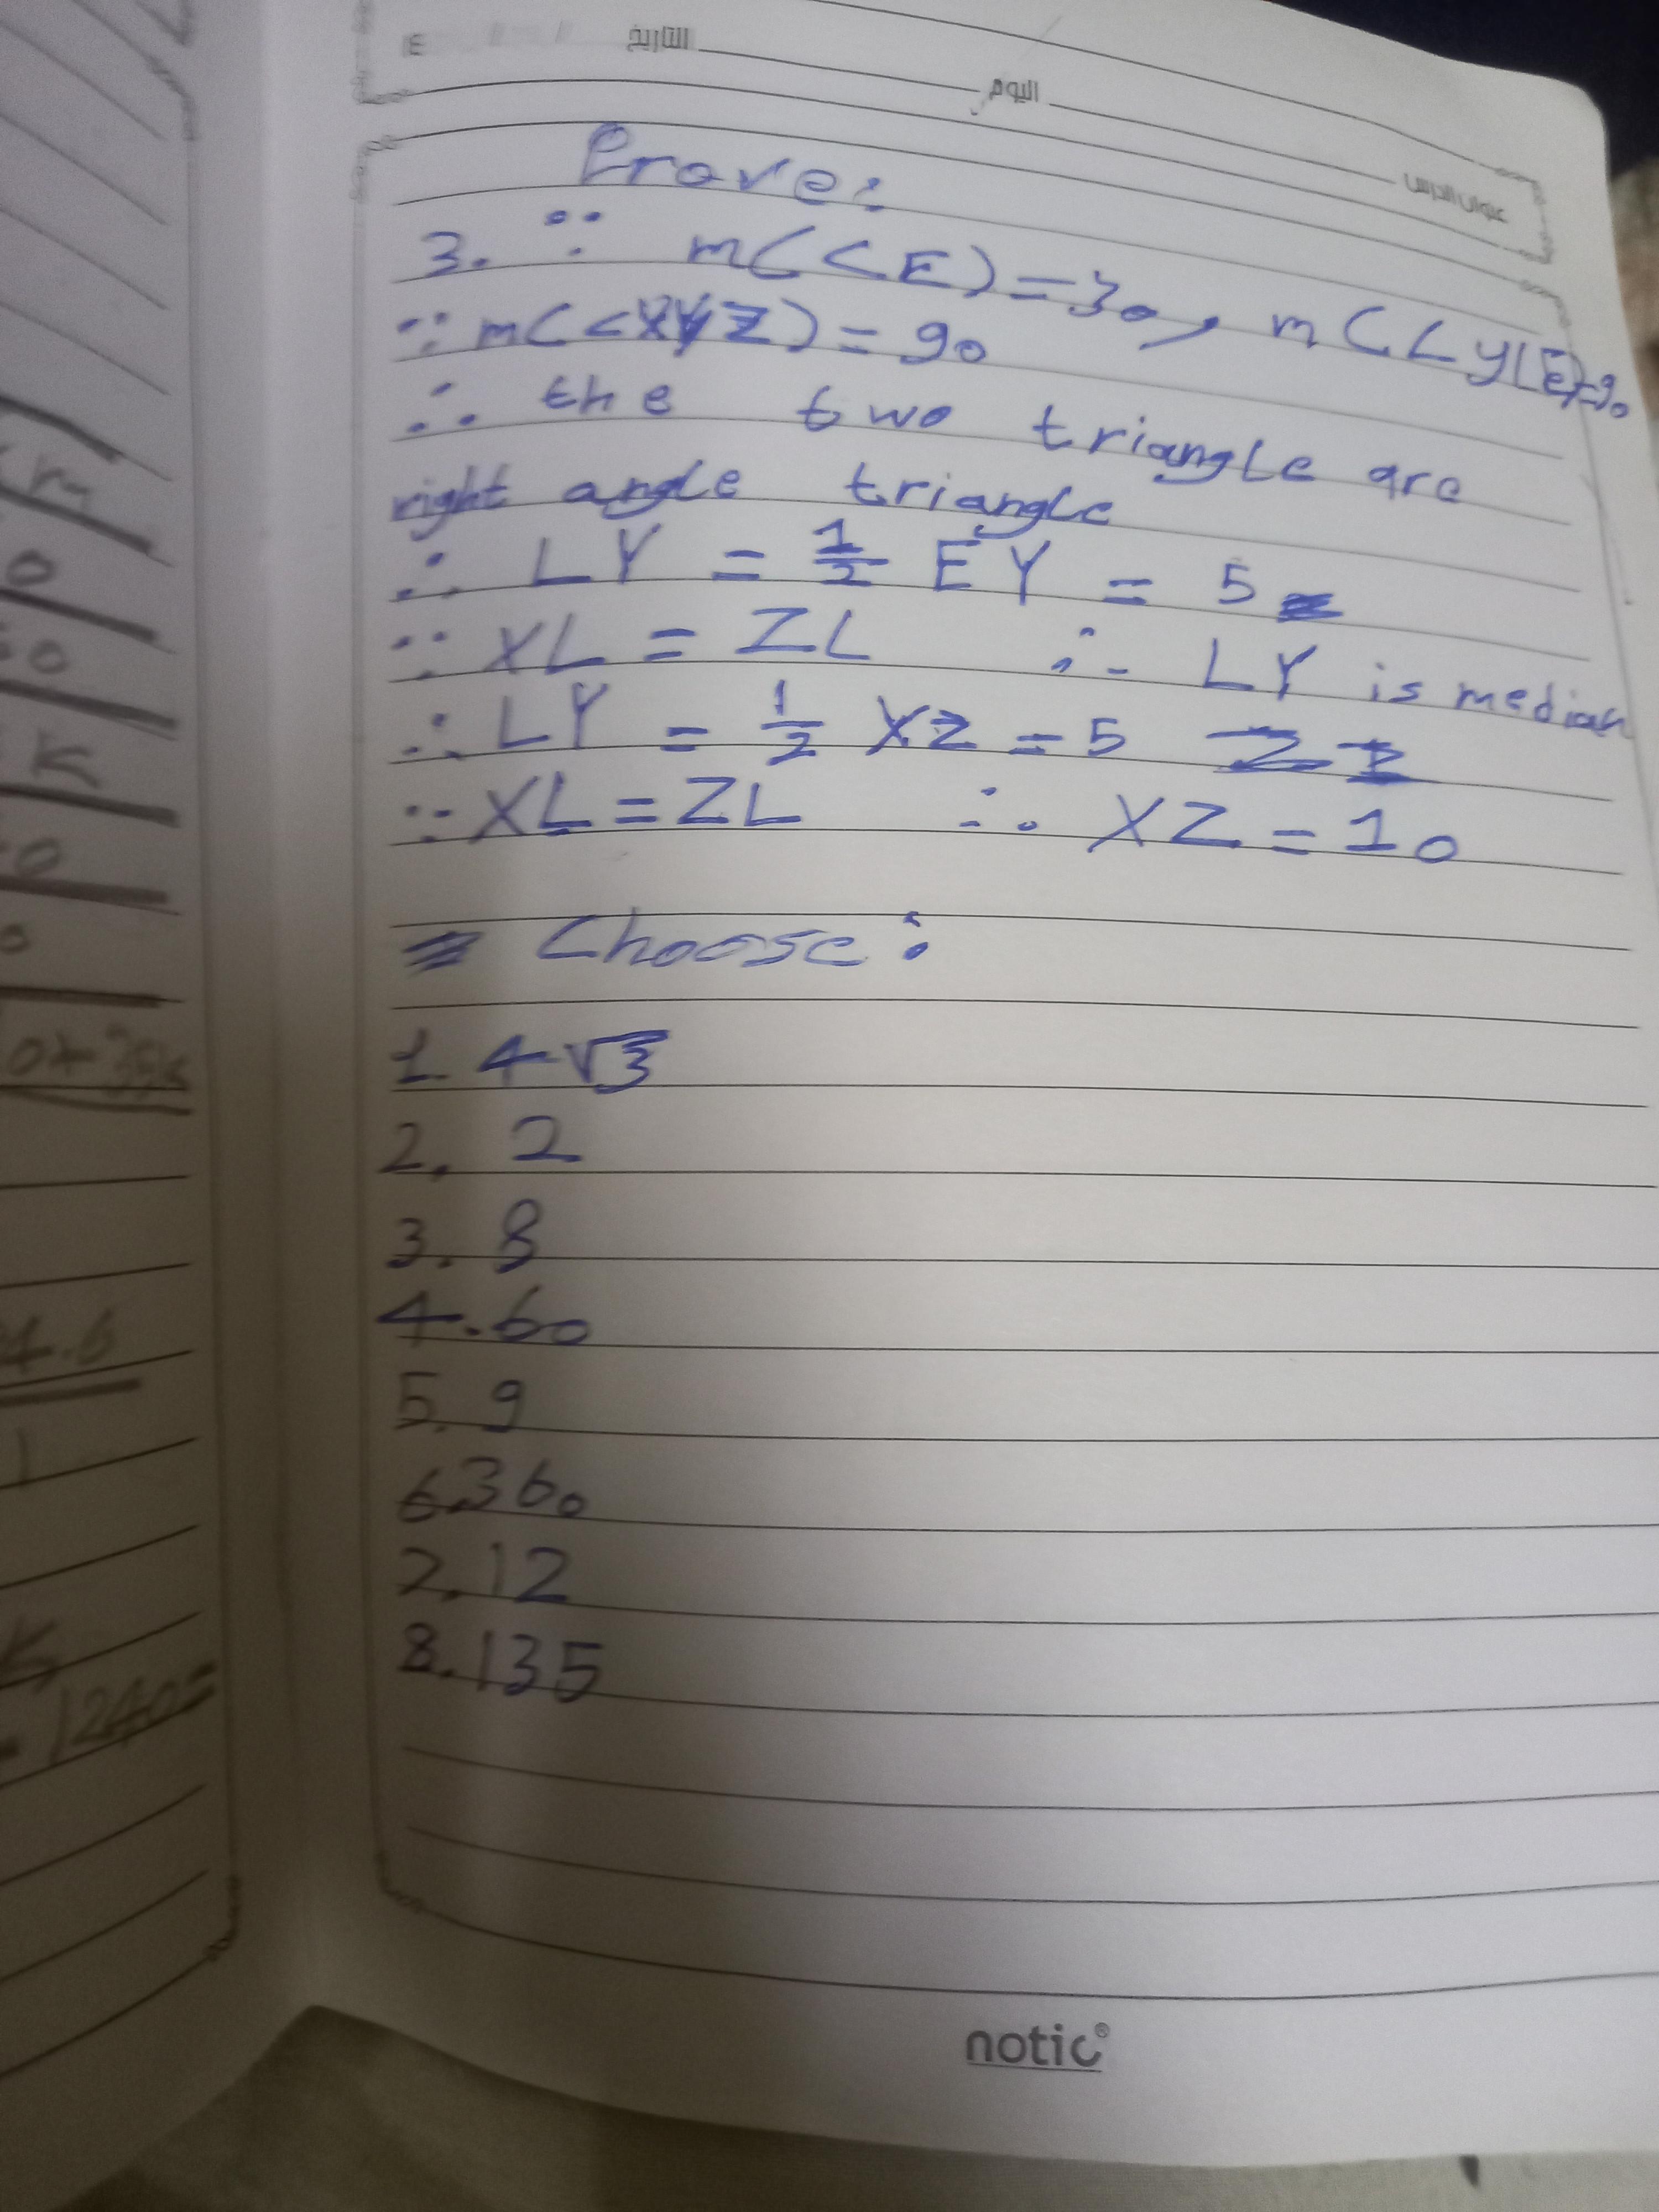 التاريخ
اليوم
عنوان الدرس
Prove:
3. ∵ m(<E)=30, m(<YLE)=90
∵ m(<XYZ)=90
∴ the two triangle are
right angle triangle
∴ LY = 1/2 EY = 5
∵ XL = ZL ∴ LY is median
∴ LY = 1/2 XZ = 5
∵ XL = ZL ∴ XZ = 10
Choose:
1. 4√3
2. 2
3. 8
4. 60
5. 9
6. 360
7. 12
8. 135
notic®